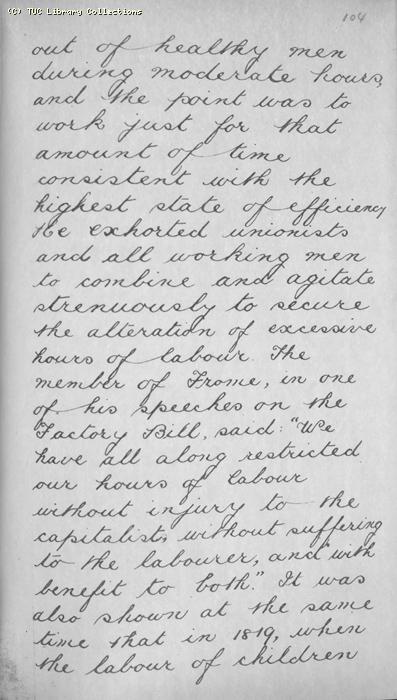 (C) TUC Library Collections
104
out of healthy men
during moderate hours,
and the point was to
work just for that
amount of time
consistent with the
highest state of efficiency
He exhorted unionists
and all working men
to combine and agitate
strenuously to secure
the alteration of excessive
hours of labour. The
member of Frome, in one
of his speeches on the
Factory Bill, said: "We
have all along restricted
our hours of labour
without injury to the
capitalist, without suffering
to the labourer, and with
benefit to both." It was
also shown at the same
time that in 1819, when
the labour of children